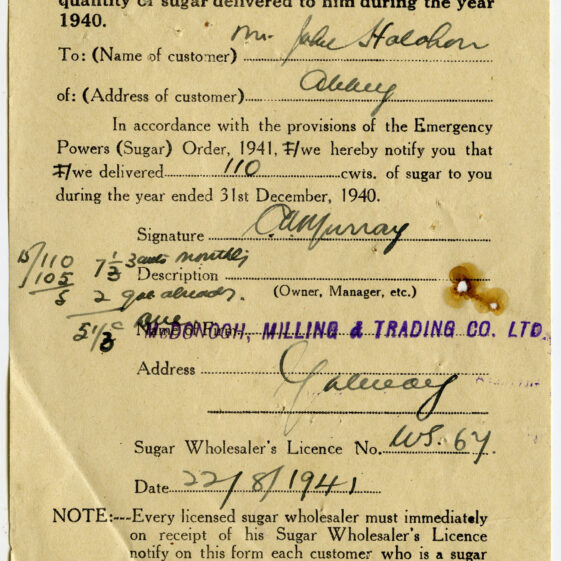 quantity of sugar delivered to him during the year
1940.
To: (Name of customer) Mr. John Holohan
of: (Address of customer) Abbey
In accordance with the provisions of the Emergency
Powers (Sugar) Order, 1941, I/we hereby notify you that
I/we delivered 110 cwts. of sugar to you
during the year ended 31st December, 1940.
Signature Murray
15/110 7 1/3 monthly
105
5 2 got already.
5 1/3 due
Description
(Owner, Manager, etc.)
Name of Firm
McDONOGH, MILLING & TRADING CO. LTD.
Address Galway
Sugar Wholesaler's Licence No. WS. 67.
Date 22/8/1941
NOTE:---Every licensed sugar wholesaler must immediately
on receipt of his Sugar Wholesaler's Licence
notify on this form each customer who is a sugar